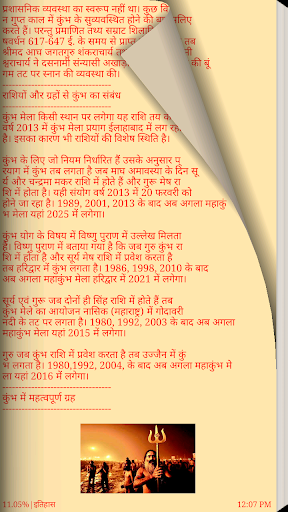 प्रशासनिक व्यवस्था का स्वरूप नहीं था। कुछ वि
न गुप्त काल में कुंभ के सुव्यवस्थित होने की बा
करते है। परन्तु प्रमाणित तथ्य सम्राट शिला
षवर्धन 617-647 ई. के समय से प्राप्त
श्रीमद आघ जगतगुरु शंकराचार्य त
श्वराचार्य ने दसनामी संन्यासी अखाड़
गम तट पर स्नान की व्यवस्था की।
----------------------------------
राशियों और ग्रहों से कुंभ का संबंध
----------------------------------
कुंभ मेला किसी स्थान पर लगेगा यह राशि तय क
वर्ष 2013 में कुंभ मेला प्रयाग ईलाहाबाद में लग रह
है। इसका कारण भी राशियों की विशेष स्थिति है।
कुंभ के लिए जो नियम निर्धारित हैं उसके अनुसार प्
रयाग में कुंभ तब लगता है जब माघ अमावस्या के दिन सू
र्य और चन्द्रमा मकर राशि में होते हैं और गुरू मेष रा
शि में होता है। यही संयोग वर्ष 2013 में 20 फरवरी को
होने जा रहा है। 1989, 2001, 2013 के बाद अब अगला महाकुं
भ मेला यहां 2025 में लगेगा।
कुंभ योग के विषय में विष्णु पुराण में उल्लेख मिलता
है। विष्णु पुराण में बताया गया है कि जब गुरु कुंभ रा
शि में होता है और सूर्य मेष राशि में प्रवेश करता है
तब हरिद्वार में कुंभ लगता है। 1986, 1998, 2010 के बाद
अब अगला महाकुंभ मेला हरिद्वार में 2021 में लगेगा।
सूर्य एवं गुरू जब दोनों ही सिंह राशि में होते हैं तब
कुंभ मेले का आयोजन नासिक (महाराष्ट्र) में गोदावरी
नदी के तट पर लगता है। 1980, 1992, 2003 के बाद अब अगला
महाकुंभ मेला यहां 2015 में लगेगा।
गुरु जब कुंभ राशि में प्रवेश करता है तब उज्जैन में कुं
भ लगता है। 1980,1992, 2004, के बाद अब अगला महाकुंभ मे
ला यहां 2016 में लगेगा।
----------------------------------
कुंभ में महत्वपूर्ण ग्रह
----------------------------------
11.05% | इतिहास 12:07 PM